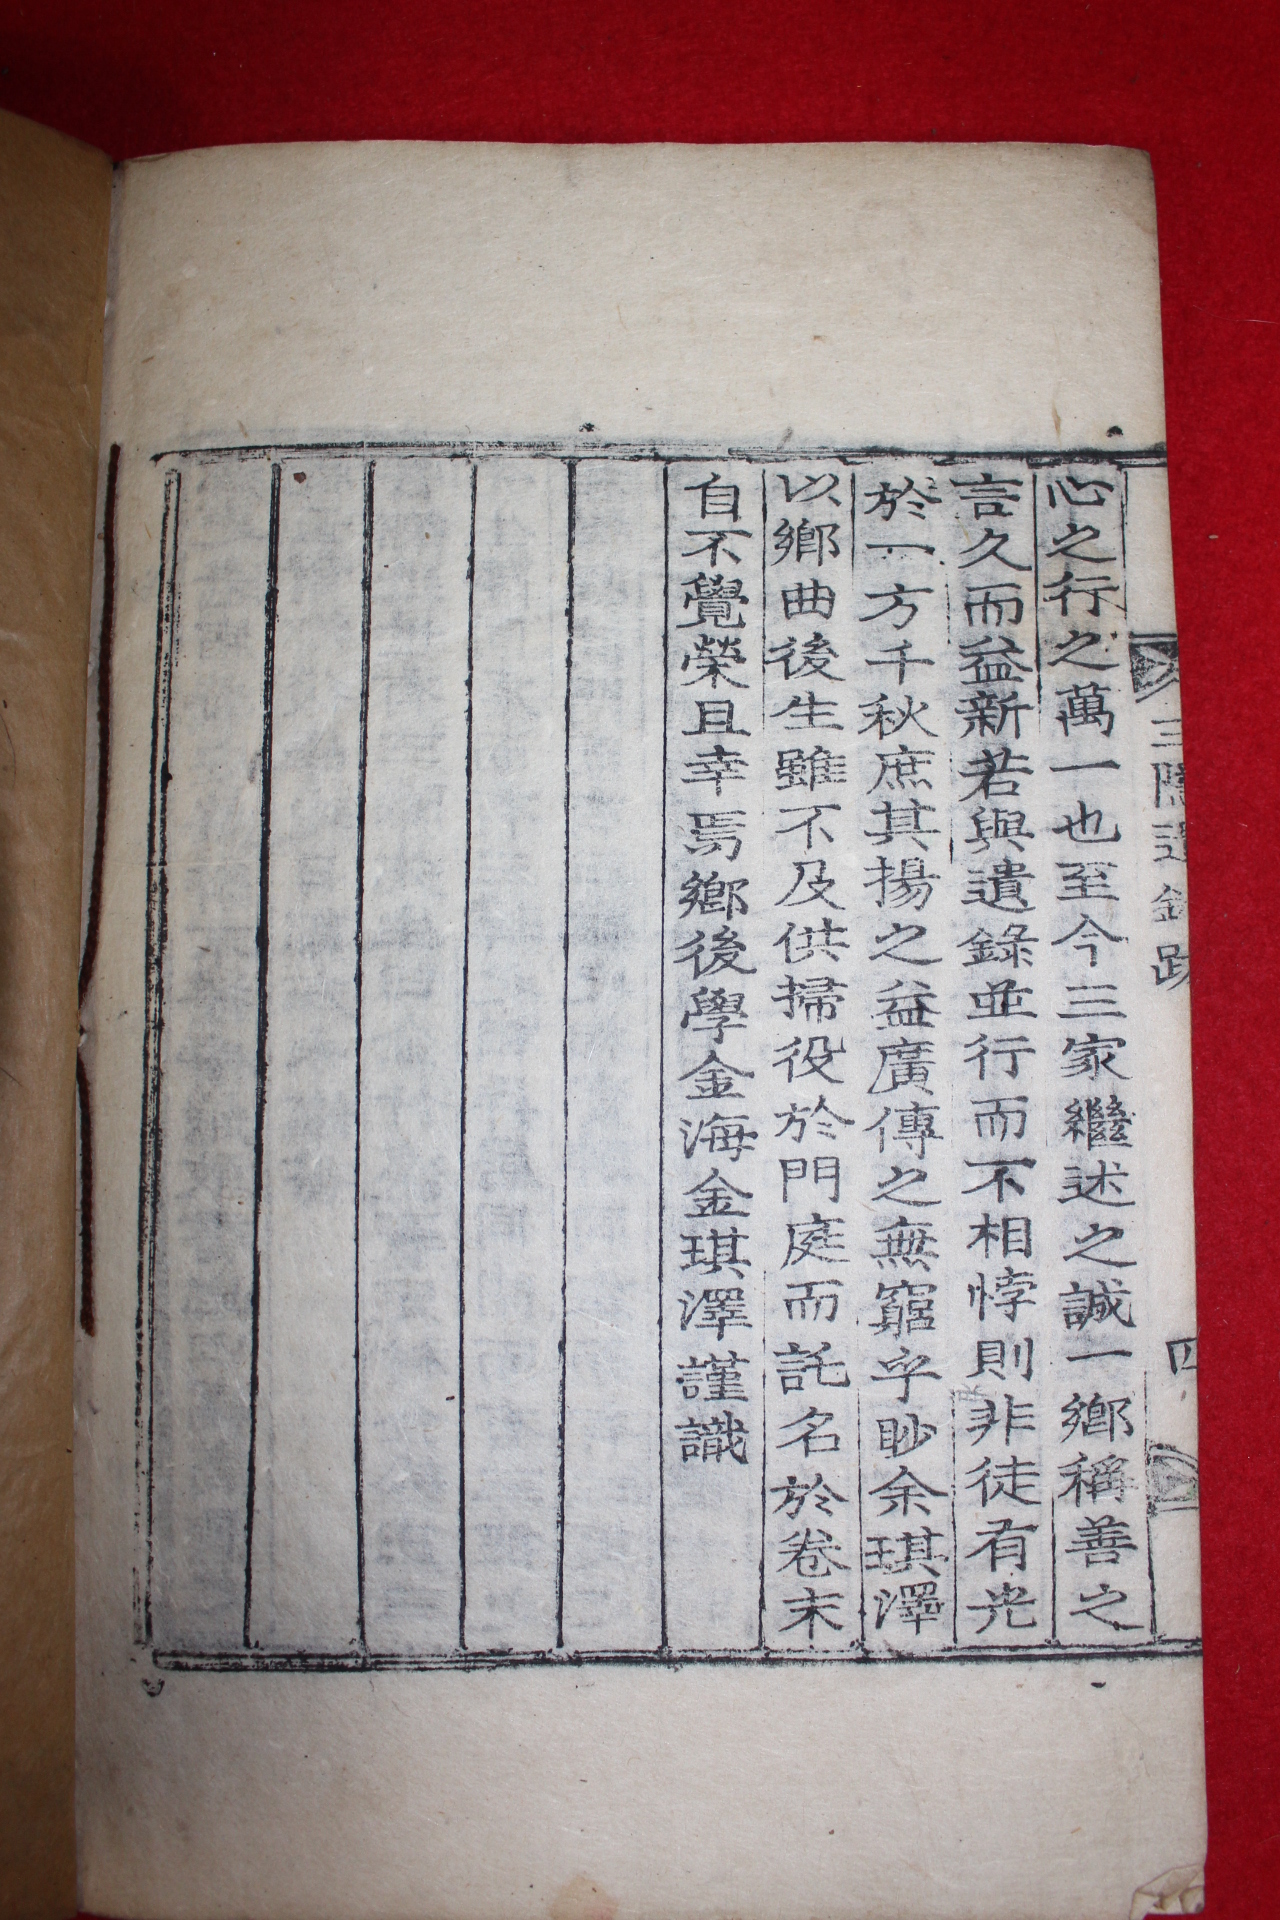 心之行之萬一也至今三家繼述之誠一鄉稱善之
言久而益新若與遺錄並行而不相悖則非徒有光
於一方千秋庶其揚之益廣傳之無窮乎眇余琪澤
以鄉曲後生雖不及供掃役於門庭而託名於卷末
自不覺榮且幸焉鄉後學金海金琪澤謹識
三隱遺錄跋
四